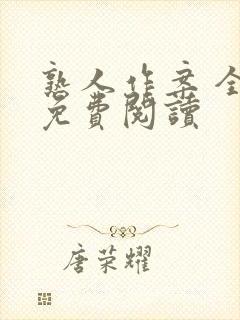 熟人作案全
免費閱讀
唐荣耀